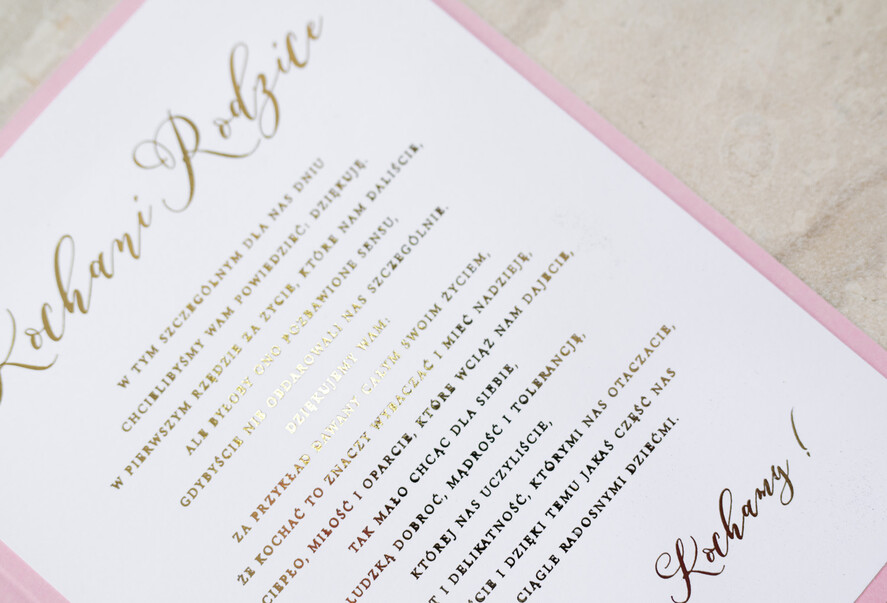 Kochani Rodzice
W TYM SZCZEGÓLNYM DLA NAS DNIU
CHCIELIBYŚMY WAM POWIEDZIEĆ: DZIĘKUJĘ.
W PIERWSZYM RZĘDZIE ZA ŻYCIE, KTÓRE NAM DALIŚCIE,
ALE BYŁOBY ONO POZBAWIONE SENSU,
GDYBYŚCIE NIE OBDAROWALI NAS SZCZEGÓLNIE.
DZIĘKUJEMY WAM:
ZA PRZYKŁAD DAWANY CAŁYM SWOIM ŻYCIEM,
ŻE KOCHAĆ TO ZNACZY WYBACZAĆ I MIEĆ NADZIEJĘ,
CIEPŁO, MIŁOŚĆ I OPARCIE, KTÓRE WCIĄŻ NAM DAJECIE,
TAK MAŁO CHCĄC DLA SIEBIE,
LUDZKĄ DOBROĆ, MĄDROŚĆ I TOLERANCJĘ,
KTÓREJ NAS UCZYLIŚCIE,
T I DELIKATNOŚĆ, KTÓRYMI NAS OTACZACIE,
ŚCIE I DZIĘKI TEMU JAKAŚ CZĘŚĆ NAS
CIĄGLE RADOSNYMI DZIEĆMI.
Kochamy!